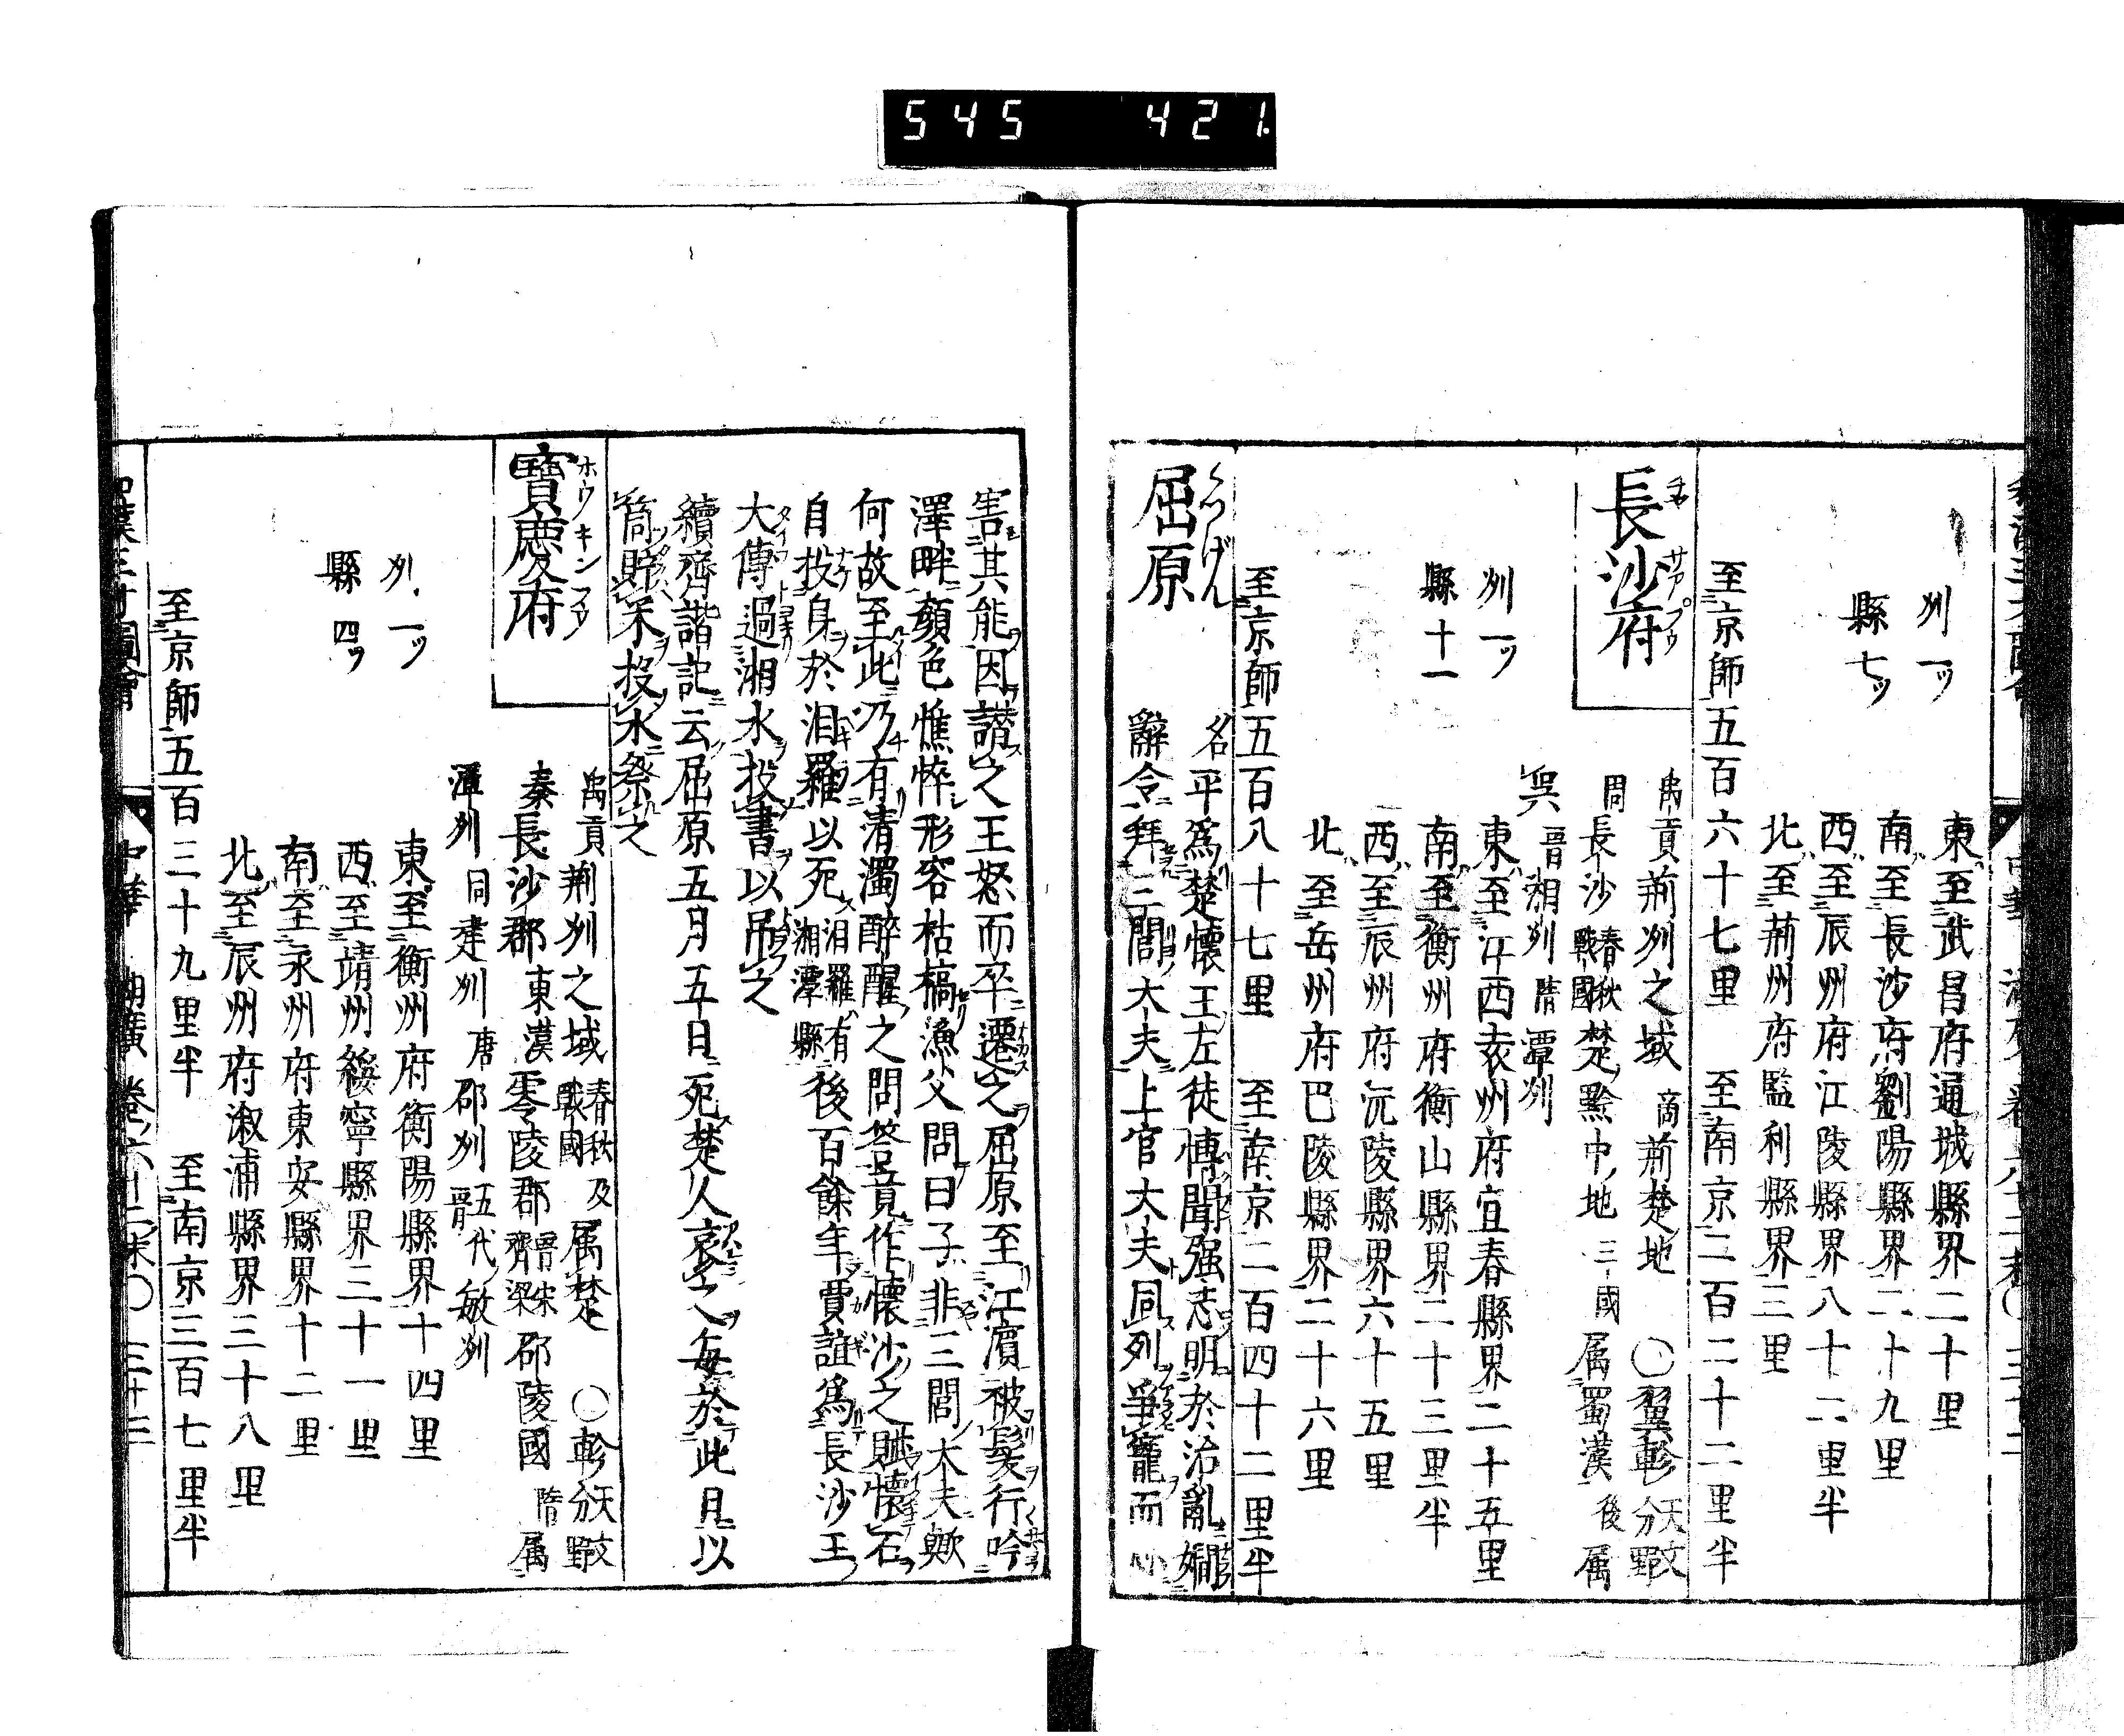 545 421.
州一ツ
縣七ツ
東至武昌府通城縣界二十里
南至長沙府劉陽縣界二十九里
西至辰州府江陵縣界八十二里半
北至荊州府監利縣界三里
至京師五百六十七里 至南京二百二十二里半
長沙府
禹貢荊州之域 商荊楚地 〇翼軫 天文分野
周長沙 春秋戰國 楚黔中地 三國属蜀漢後属
吳 晉湘州 隋潭州
州一ツ
縣十一
東至江西袁州府宜春縣界二十五里
南至衡州府衡山縣界二十三里半
西至辰州府沅陵縣界六十五里
北至岳州府巴陵縣界二十六里
至京師五百八十七里 至南京二百四十二里半
屈原 くつげん
名平為楚懷王左徒博聞强志明於治亂嫺
辭令拜三閭大夫上官大夫同列爭寵而心
害其能因譖之王怒而卒遷之屈原至江濱被髮行吟
澤畔顏色憔悴形容枯槁漁父問曰子非三閭大夫歟
何故至此乃有清濁醉醒之問答竟作懷沙之賦懷石
自投身於汨羅以死 汨羅有湘潭縣 後百餘年賈誼為長沙王
大傳過湘水投書以吊之
續齊諧記云屈原五月五日死楚人哀之每於此日以
筒貯米投水祭之
寶慶府 ホウキンフウ
禹貢荊州之域 春秋戰國 及属楚 〇軫 天文分野
秦長沙郡 東漢零陵郡 晋宋齊梁 邵陵國 隋属
潭州 同建州 唐邵州 五代晋 敏州
州一ツ
縣四ツ
東至衡州府衡陽縣界十四里
西至靖州綏寧縣界三十一里
南至永州府東安縣界十二里
北至辰州府溆浦縣界三十八里
至京師五百三十九里半 至南京三百七里半
中華 湖廣 卷六十二末〇三十三